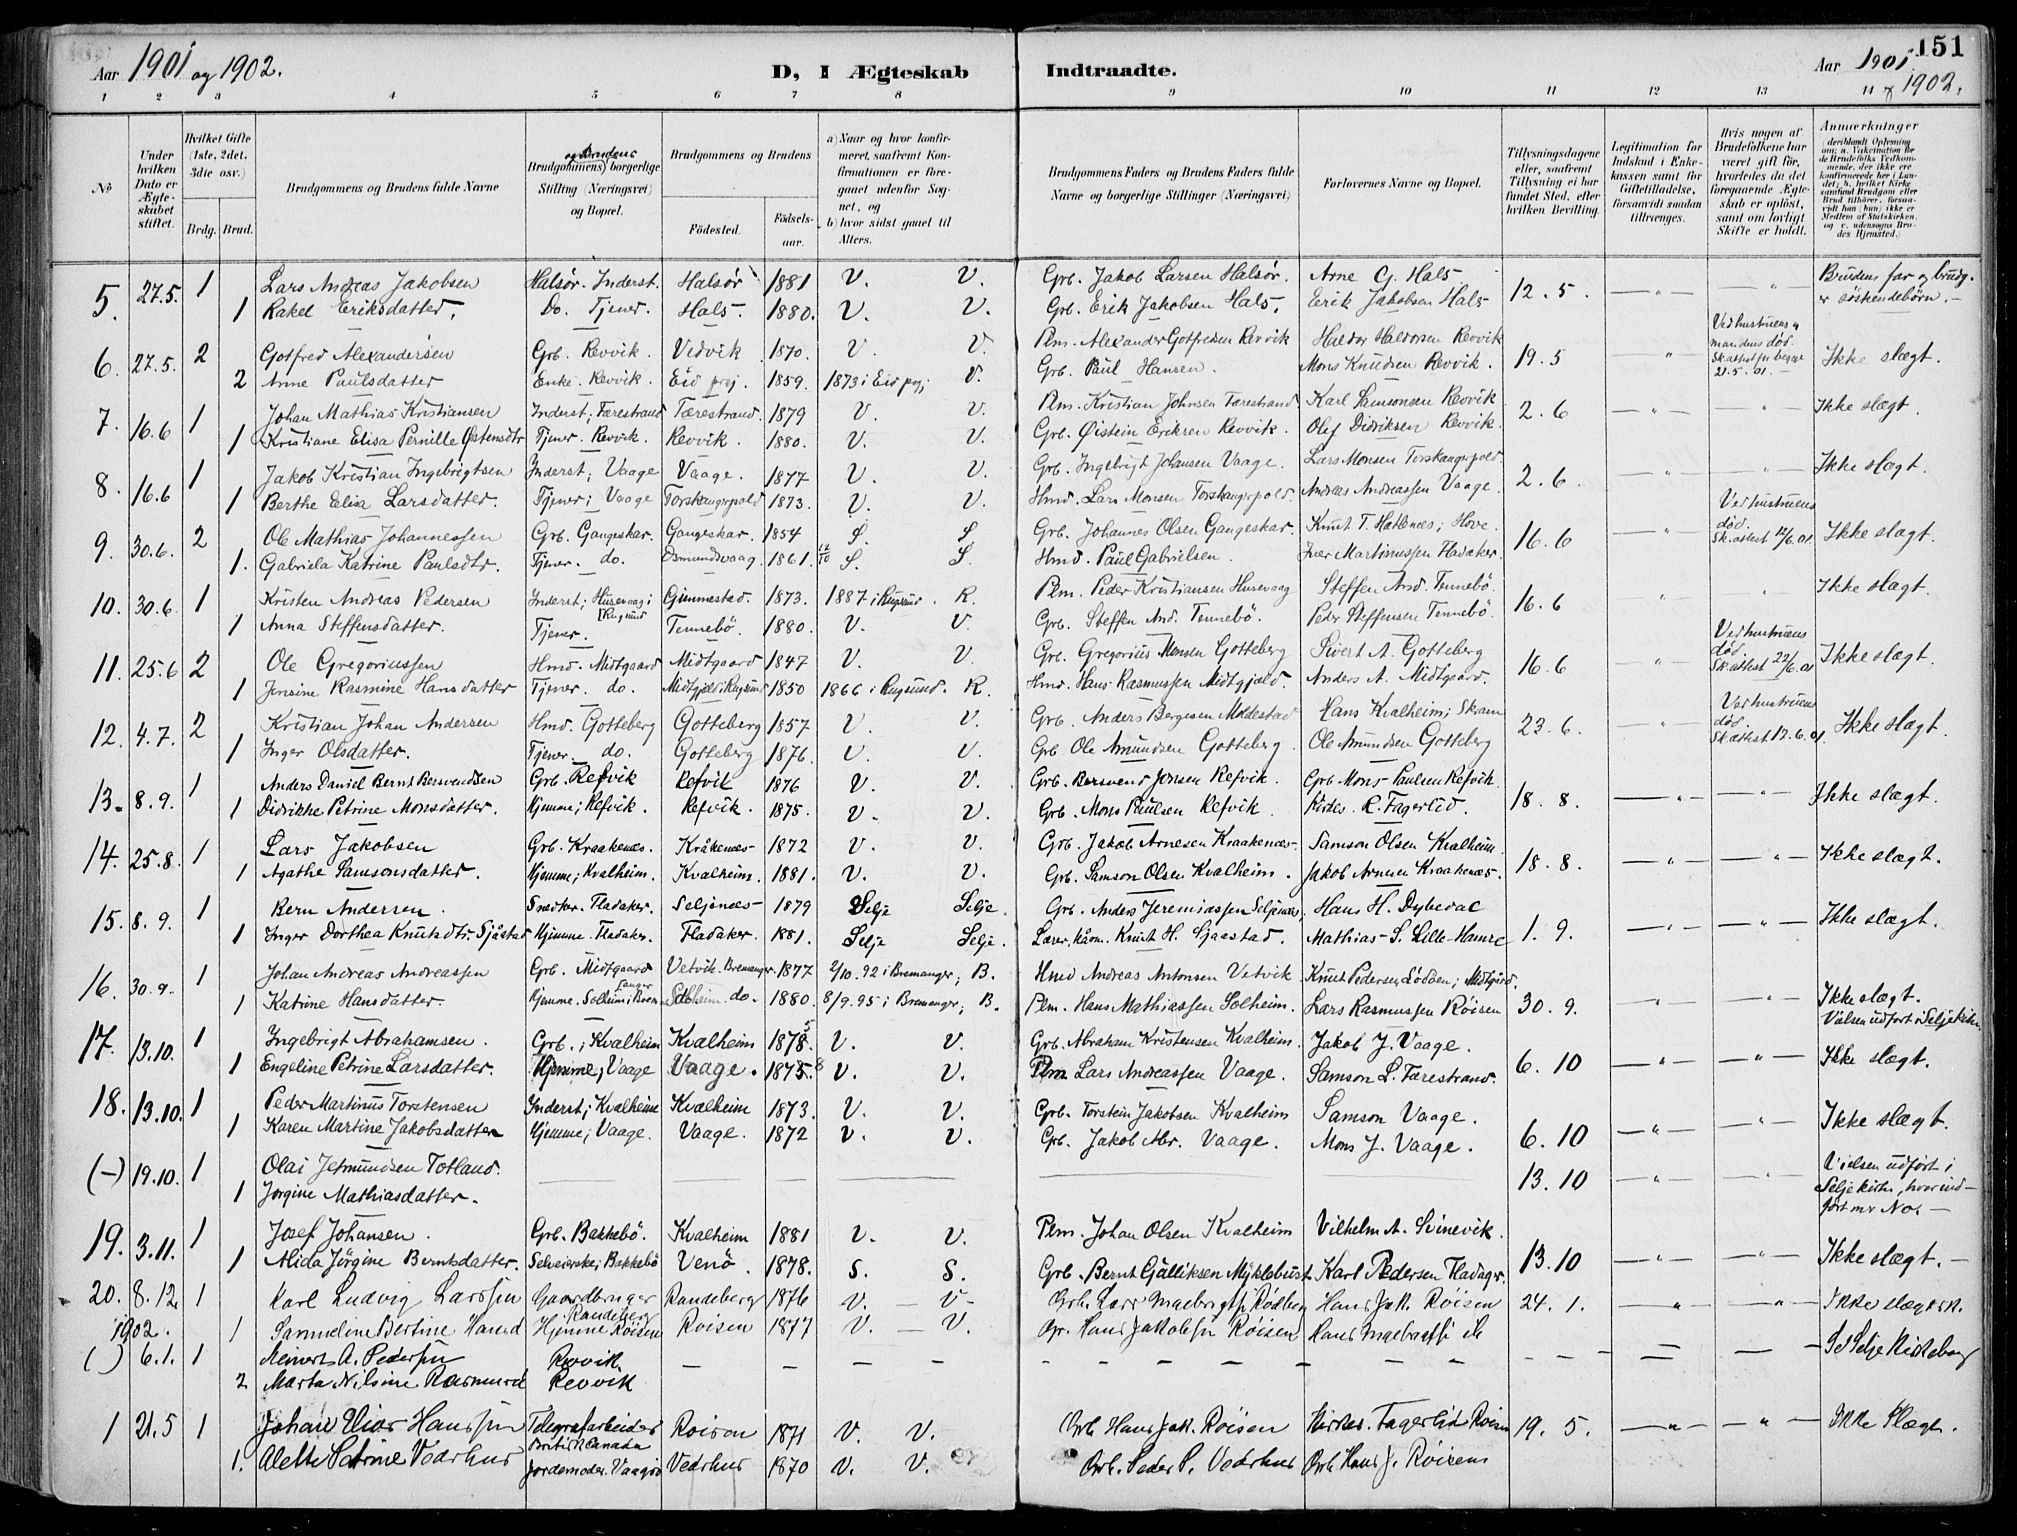 Aar 1901 og 1902.
D, I Ægteskab
Indtraadte.
Aar 1901.
151
& 1902.
1 2 3 4 5 6 7 8 9 10 11 12 13 14
No
Under hvilken Dato er Ægteskabet stiftet.
Hvilket Gifte (1ste, 2det, 3die osv.)
Brdg. Brud.
Brudgommens og Brudens fulde Navne
og Brudens
Brudgommens borgerlige Stilling (Næringsvei) og Bopæl.
Brudgommens og Brudens
Fødested.
Fødselsaar.
a) Naar og hvor konfirmeret, saafremt Konfirmationen er foregaaet udenfor Sognet, og
b) hvor sidst gaaet til Alters.
Brudgommens Faders og Brudens Faders fulde Navne og borgerlige Stillinger (Næringsvei)
Forlovernes Navne og Bopæl.
Tillysningsdagene eller, saafremt Tillysning ei har fundet Sted, efter hvilken Bevilling.
Legitimation for Indskud i Enkekassen samt for Giftetilladelse, forsaavidt saadan tiltrænges.
Hvis nogen af Brudefolkene har været gift før, hvorledes da det foregaaende Ægteskab er opløst, samt om lovligt Skifte er holdt.
Anmærkninger
(deriblandt Oplysning om: a. Vakcination for de Brudefolks Vedkommende, der ikke ere konfirmerede her i Landet; b. hvilket Kirkesamfund Brudgom eller Brud tilhører, forsaavidt han (hun) ikke er Medlem af Statskirken, og c. udensogns Brudes Hjemsted.)
5. 27.5. 1 Lars Andreas Jakobsen Halsör. Inderst. Halsör 1881 V. V. Grb. Jakob Larsen Halsör. Arne G. Hals 12.5. — " — — " — Brudens far og brudg.
1 Rakel Eriksdatter. Do. Tjener. Hals. 1880. V. V. Grb. Erik Jakobsen Hals. Erik Jakobsen Hals er söskendebörn. —
6. 27.5. 2 Gotfred Alexandersen Grb. Revvik. Vedvik 1870. V. V. Plm. Alexander Gotfredsen Revvik Haldor Haldorsen Revvik 19.5 " Ved hustruens og mandens död. Skattest fr begge 21.5.01. — Ikke slægt.
2 Anne Paulsdatter Enke. Revvik. Eid prj. 1859. 1873 i Eid prj; V. Grb. Paul Hansen. Mons Knudsen Revvik.
7. 16.6 1 Johan Mathias Kristiansen Inderst; Færestrand Færestrand. 1879 V. V. Plm. Kristian Johnsen Færestrand. Karl Samsonsen Revvik 2.6 — " — " — Ikke slægt.
1 Kristiane Elisa Pernille Østensdtr Tjener. Revvik. Revvik. 1880. V. V. Grb. Øistein Eriksen Revvik. Olef Didriksen Revvik.
8. 16.6 1 Jakob Kristian Ingebrigtsen Inderst; Vaage Vaage. 1877 V. V. Grb. Ingebrigt Johansen Vaage. Lars Monsen Torskangerpold. 2.6. — " — " — Ikke slægt.
1 Berthe Elisa Larsdatter. Tjener; Vaage Torskangerpold 1873. V. V. Hmd. Lars Monsen Torskangerpold. Andreas Andreassen Vaage.
9. 30.6. 2 Ole Mathias Johannessen Grb. Gangeskar. Gangeskar. 1854 S. S Grb. Johannes Olsen Gangeskar. Knut T. Hatlenæs; Hove. 16.6 — " — Ved hustruens död. Skattest 12/6.01. Ikke slægt.
1. Gabriela Katrine Paulsdtr. Tjener. do. Osmundsvaag. 1861. 12/10 S. S. Hmd. Paul Gabrielsen. Iver Martinussen Fladaker.
10. 30.6. 1 Kristen Andreas Pedersen Inderst; Husevaag i Rugsund Gjunnestad. 1873. 1887 i Rugsund. R. Plm. Peder Kristiansen Husevaag Steffen And. Tennebö. 16.6 " " Ikke slægt.
1 Anna Steffensdatter. Tjener. Tennebö. 1880. V. V. Grb. Steffen And. Tennebö. Peder Steffensen Tennebö.
11. 25.6 2 Ole Gregoriussen Hmd. Midtgaard Midtgaard 1847 V. V. Grb. Gregorius Monsen Gotteberg Sivert A. Gotteberg 16.6 " Ved hustruens död. Skattest 22/6.01 Ikke slægt.
1 Jensine Rasmine Hansdatter Tjener. do. Midtgjæld i Rugsund 1850 1866 i Rugsund. R. Hmd. Hans Rasmussen Midtgjæld. Anders A. Midtgaard.
12. 4.7. 2 Kristian Johan Andersen Hmd. Gotteberg Gotteberg 1857 V. V. Grb. Anders Børgesen Moldestad Hans Kvalheim; Skram 23.6. " Ved hustruens död. Skattest 17.6.01. Ikke slægt.
1 Inger Olsdatter. Tjener. do. Gotteberg 1876. V. V. Grb Ole Amundsen Gotteberg. Ole Amundsen Gotteberg
13. 8.9. 1 Anders Daniel Bernt Bersvendsen Grb. Refvik Refvik 1876 V. V. Grb. Bersvend Jensen Refvik. Grb Mons Paulsen Refvik. 18.8. — " — — " — Ikke slægt.
1 Didrikke Petrine Monsdatter. Hjemme; Refvik. Refvik. 1875. V. V. Grb. Mons Paulsen Refvik Kirkes. R. Fagerlid.
14. 25.8. 1 Lars Jakobsen Grb. Kraakenæs. Kråkenæs 1872 V. V. Grb. Jakob Arnesen Kraakenæs. Samson Olsen Kvalheim. 18.8. — " — — " — Ikke slægt.
1 Agathe Samsonsdatter. Hjemme; Kvalheim. Kvalheim. 1881. V. V. Grb. Samson Olsen Kvalheim. Jakob Arnesen Kraakenæs.
15. 8.9. 1 Bern Andersen. Snedker. Fladaker. Seljenæs 1879 Selje Selje. Grb. Anders Jeremiassen Seljenæs. Hans H. Dybedal 1.9. — " — — " — Ikke slægt.
1 Inger Dorthea Knutsdtr. Sjåstad Hjemme. Fladaker. Fladaker. 1881. Selje Selje. Lærer, Knut H. Sjaastad. Mathias S. Lille-Hamre
16. 30.9. 1 Johan Andreas Andreassen Grb. Midtgaard Vetvik. Bremanger. 1877 2/10.92 i Bremanger; B. Hmd Andreas Antonsen Vetvik Knut Pedersen Lødöen; Midtgård. 30.9. " " Ikke slægt. Vielsen udfört i Seljekirke.
1 Katrine Hansdatter. Hjemme. Solheim i Bremanger Solheim do. 1880. 8/9.95 i Bremanger; B. Plm. Hans Mathiassen Solheim. Lars Rasmussen Røisen
17. 13.10. 1 Ingebrigt Abrahamsen. Grb.; Kvalheim Kvalheim 1875. V. V. Grb. Abraham Kristensen Kvalheim. Jakob J. Vaage. 6.10 — " — — " — Ikke slægt.
1 Engeline Petrine Larsdatter. Hjemme; Vaage Vaage. 1875. 8 V. V. Plm Lars Andreassen Vaage. Samson L. Færestrand.
18. 13.10. 1 Peder Martinus Torstensen Inderst; Kvalheim Kvalheim 1873. V. V. Grb. Torstein Jakobsen Kvalheim Samson Vaage. 6.10 — " — — " — Ikke slægt.
1 Karen Martine Jakobsdatter Hjemme; Vaage. Vaage. 1872 V. V. Grb. Jakob Abr. Vaage. Mons J. Vaage.
(—) 19.10. 1 Olai Jetmundsen Totland. 13.10 — " — — " — Vielsen udfört i Seljekirke, hvor indfört m. No. —
1 Jørgine Mathiasdatter.
19. 3.11. 1 Josef Johansen. Grb. Bakkebö. Kvalheim 1881 V. V. Plm. Johan Olsen Kvalheim Vilhelm A. Svinevik. 13.10 — " — — " — Ikke slægt. —
1 Alida Jörgine Berntsdatter. Selveierske; Bakkebö Venö. 1878. S. S. Grb. Bernt Gjælliksen Myklebust Karl Pedersen Fladager.
20. 8.12. 1 Karl Ludvig Larssen Gaardbruger Randeberg Randeberg 1876 V. — V — Grb. Lars Rødberg Hans Jak. Røisen 24.1. — " — — " — Ikke slægtsk.
1902. 1 Samueline Bertine Hansd Hjemme Røisen Røisen 1877 V. — V. Gr. Hans Jakobsen Røisen Hans
( ) 6.1. 1 Meinert A. Pedersen Revvik. — — — — — Se Selje Kirkebog
2 Marta Nilsine Rasmusd Revvik
1 21.5 1 Johan Hanssen Telegrafarbeider British Canada Røisen 1871 V. V. Grb Hans Jak. Røisen Kirkes. Fagerlid Røisen 19.5. — " — — " — Ikke Slægt.
1. Alette Petrine Vedrhus Jordemoder. Vaagsö Vedrhus 1870 V. V. Grb. Peder P. Vedrhus Grb Hans J. Røisens